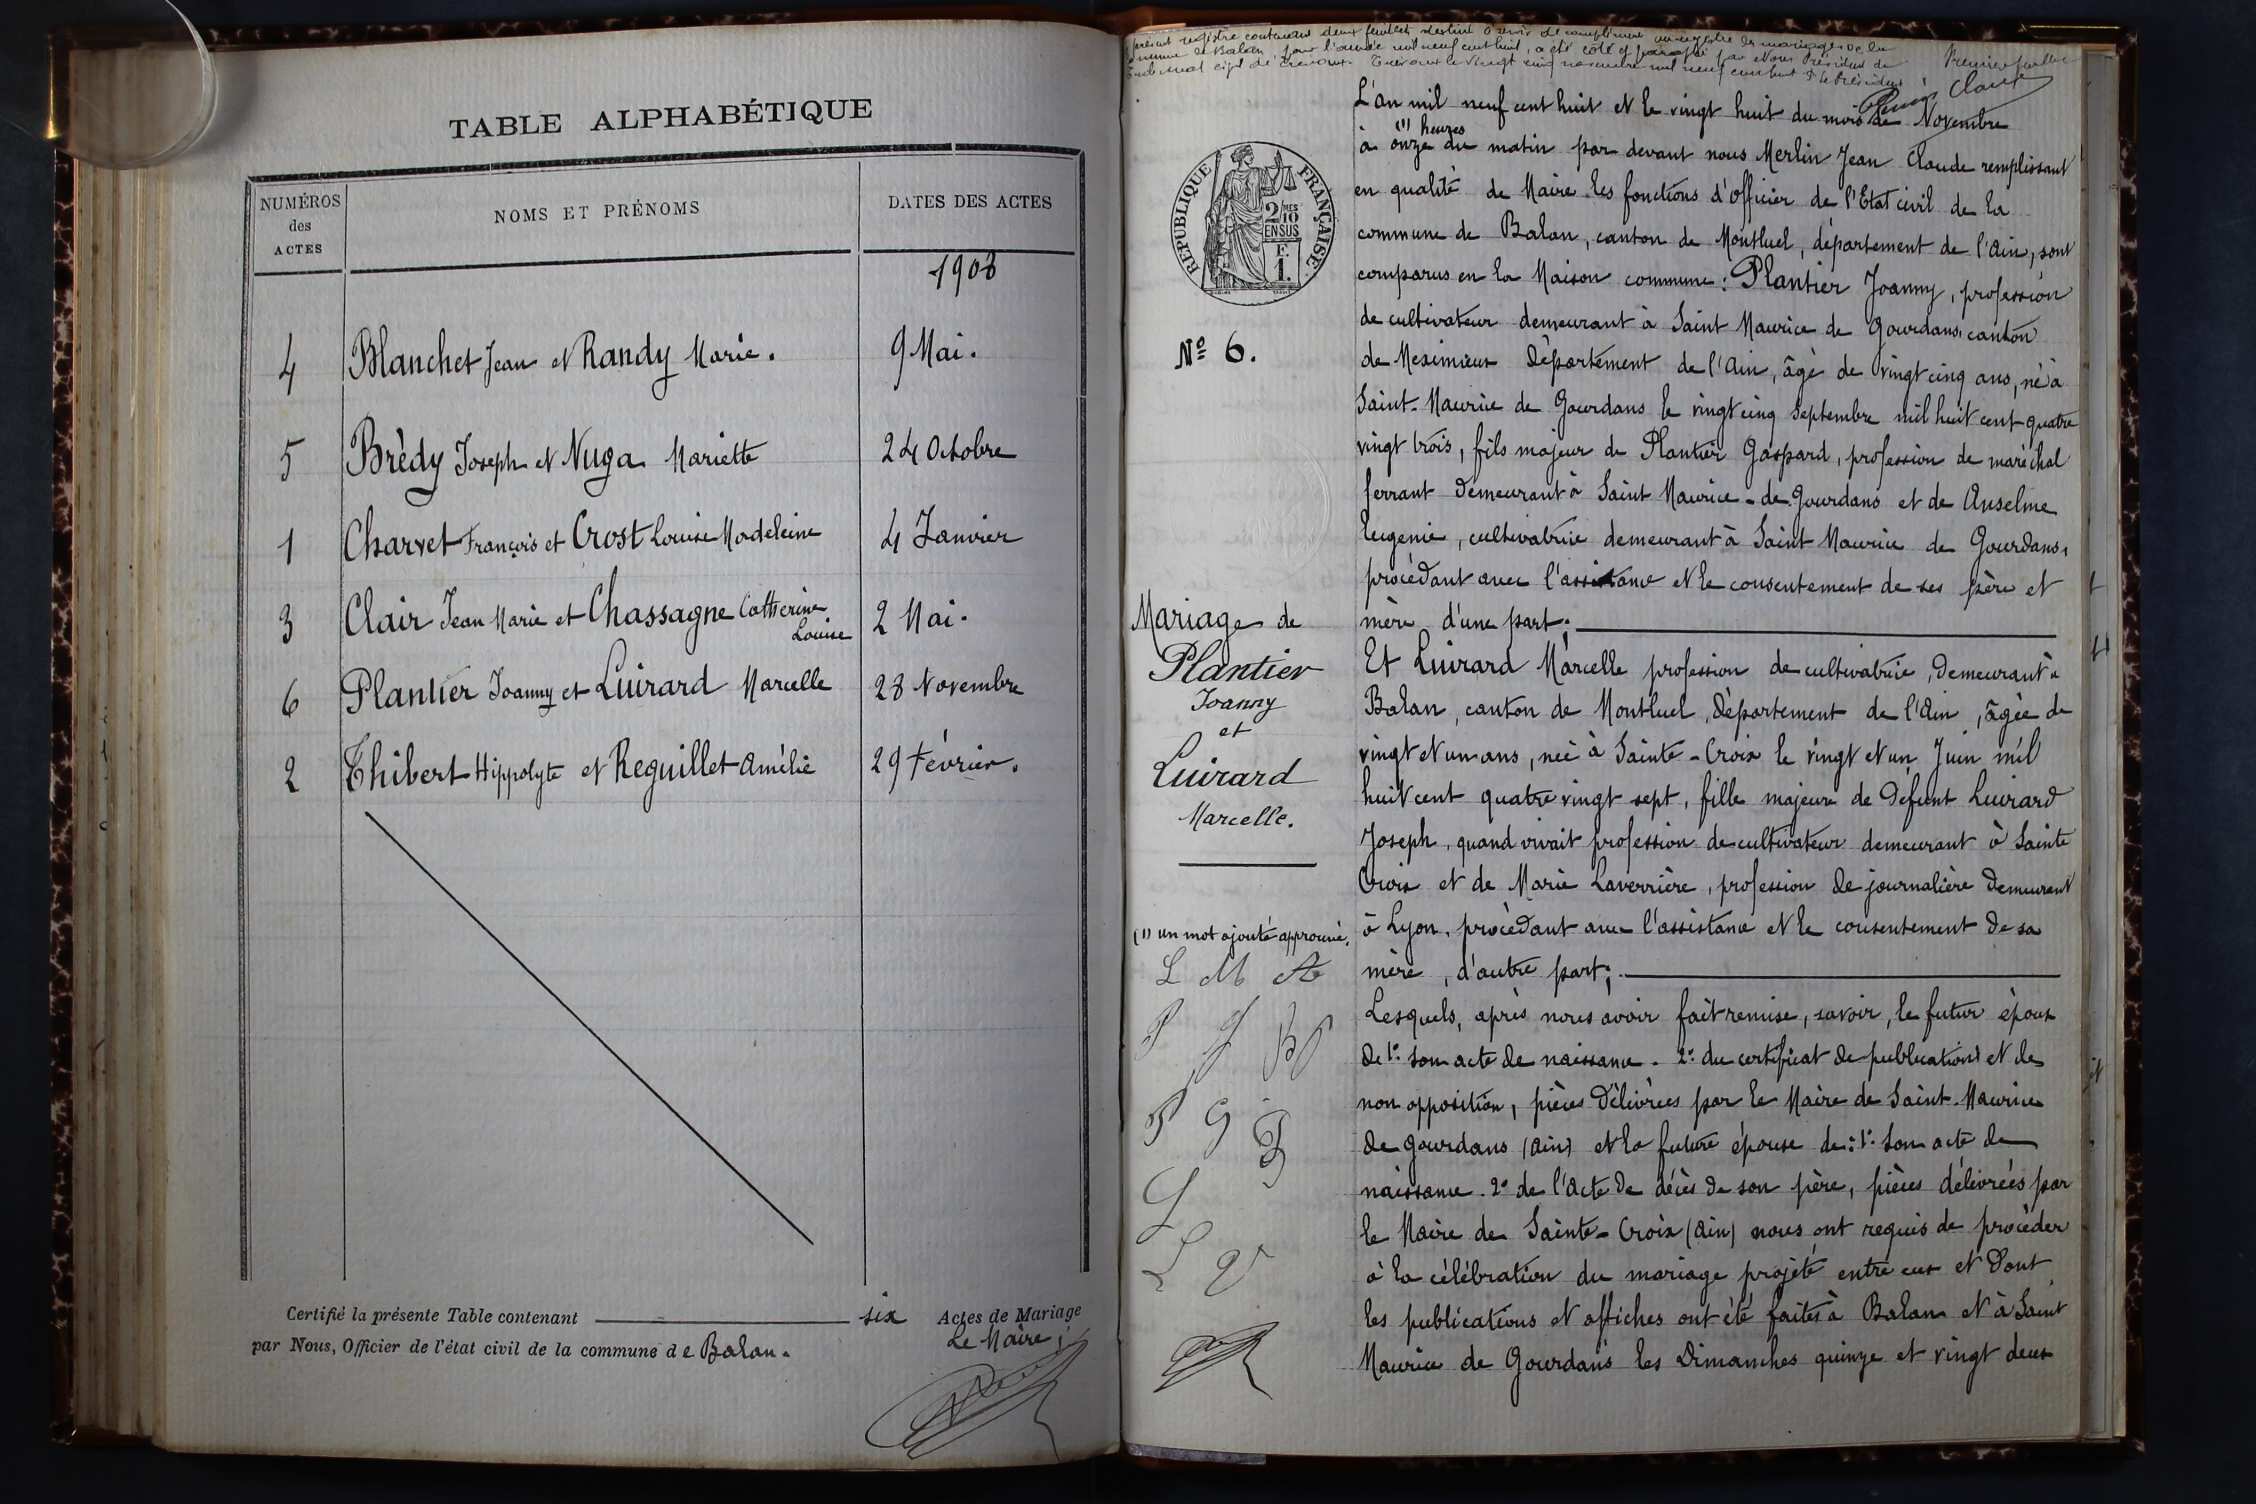 TABLE ALPHABÉTIQUE
NUMÉROS
des
ACTES
NOMS ET PRÉNOMS
DATES DES ACTES
1908
4 Blanchet Jean et Randy Marie. 9 Mai.
5 Brèdy Joseph et Nuga Mariette 24 Octobre
1 Charvet François et Crost Louise Madeleine 4 Janvier
3 Clair Jean Marie et Chassagne Catherine Louise 2 Mai.
6 Plantier Joanny et Luirard Marcelle 28 Novembre
2 Thibert Hippolyte et Reguillet Amélie 29 Février.
Certifié la présente Table contenant six Actes de Mariage
par Nous, Officier de l'état civil de la commune de Balan.
Le Maire,
présent registre contenant deux feuillets destiné à servir de complément au registre des mariages de la
commune de Balan, pour l'année mil neuf cent huit, a été coté et paraphé par Nous Président du
Tribunal civil de Trévoux. Trévoux le vingt cinq novembre mil neuf cent huit Le Président
Premier feuillet
RÉPUBLIQUE FRANÇAISE
2/10 EN SUS
F.
1.
Nº 6.
Mariage de
Plantier
Joanny
et
Luirard
Marcelle.
(1) un mot ajouté approuvé.
L M
P J
P G
L V
L'an mil neuf cent huit et le vingt huit du mois de Novembre
à onze (1) heures du matin par devant nous Merlin Jean Claude remplissant
en qualité de Maire les fonctions d'officier de l'Etat civil de la
commune de Balan, canton de Montluel, département de l'Ain, sont
comparus en la Maison commune : Plantier Joanny, profession
de cultivateur demeurant à Saint Maurice de Gourdans, canton
de Meximieux Département de l'Ain, âgé de vingt cinq ans, né à
Saint-Maurice de Gourdans le vingt cinq Septembre mil huit cent quatre
vingt trois, fils majeur de Plantier Gaspard, profession de maréchal
ferrant demeurant à Saint Maurice-de-Gourdans et de Anselme
Eugenie, cultivatrice demeurant à Saint Maurice de Gourdans,
procédant avec l'assistance et le consentement de ses père et
mère d'une part;
Et Luirard Marcelle profession de cultivatrice, demeurant à
Balan, canton de Montluel, Département de l'Ain, âgée de
vingt et un ans, née à Sainte-Croix le vingt et un Juin mil
huit cent quatre vingt sept, fille majeure de défunt Luirard
Joseph, quand vivait profession de cultivateur demeurant à Sainte
Croix et de Marie Laverrière, profession de journalière demeurant
à Lyon, procédant avec l'assistance et le consentement de sa
mère, d'autre part;
Lesquels, après nous avoir fait remise, savoir, le futur époux
de 1º son acte de naissance. 2º du certificat de publications et de
non opposition, pièces délivrées par le Maire de Saint-Maurice
de Gourdans (Ain) et la future épouse de : 1º son acte de
naissance. 2º de l'acte de décès de son père, pièces délivrées par
le Maire de Sainte-Croix (Ain) nous ont requis de procéder
à la célébration du mariage projeté entre eux et dont
les publications et affiches ont été faites à Balan et à Saint
Maurice de Gourdans les Dimanches quinze et vingt deux